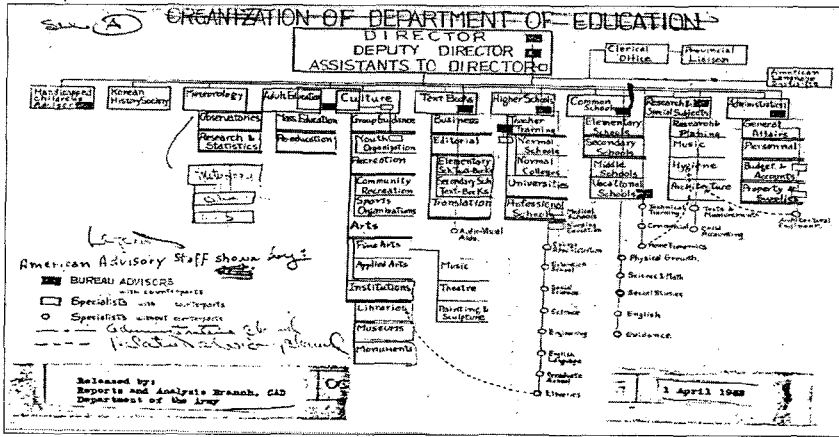 See A
ORGANIZATION OF DEPARTMENT OF EDUCATION
DIRECTOR
DEPUTY DIRECTOR
ASSISTANTS TO DIRECTOR
Clerical Office
Provincial Liaison
American Language Institute
Handicapped Children's
Korean History Society
Meteorology
Observatories
Research & Statistics
Adult Education
Mass Education
Re-education
Culture
Group Guidance
Youth Organization
Recreation
Community Recreation
Sports Organizations
Arts
Fine Arts
Applied Arts
Music
Theatre
Painting & Sculpture
Institutions
Libraries
Museums
Monuments
Text Books
Business
Editorial
Elementary Sch. Text-Books
Secondary Sch. Text-Books
Translation
Audio-Visual Aids
Higher Schools
Teacher Training
Normal Schools
Normal Colleges
Universities
Professional Schools
Medical Schools
Nursing Education
Social Science
Science
Engineering
English Language
Graduate School
Libraries
Common Schools
Elementary Schools
Secondary Schools
Middle Schools
Vocational Schools
Technical Training
Commercial
Home Economics
Physical Growth
Science & Math
Social Studies
English
Guidance
Research & Special Subjects
Research & Planning
Music
Hygiene
Architecture
Tests & Measurements
Child Accounting
Administration
General Affairs
Personnel
Budget & Accounts
Property & Supplies
Architectural Engineer
Legend
American Advisory Staff shown by:
BUREAU ADVISORS
with counterparts
Specialists with counterparts
Specialists without counterparts
Released by:
Reports and Analysis Branch, CAD
Department of the Army
1 April 1948